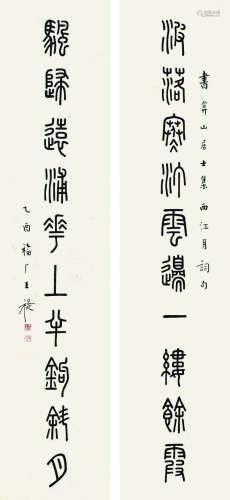 書弇山居士集西江月詞句
波落寒汀雲邊一縷餘霞
颿歸遠浦花上半鉤斜月
乙酉福厂王禔